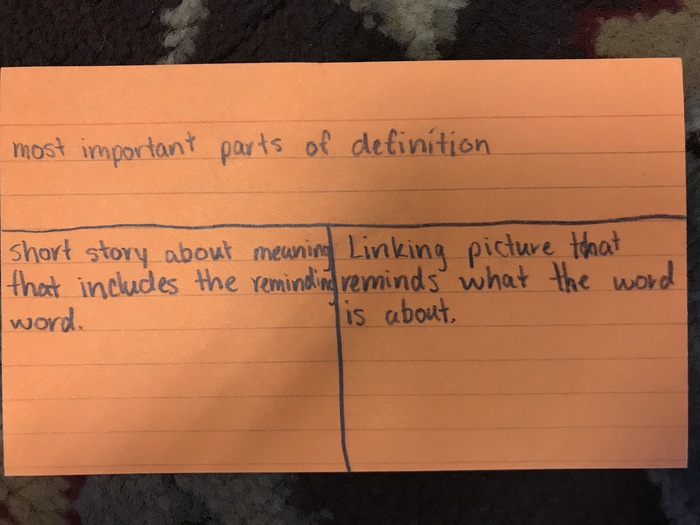 most important parts of definition
short story about meaning
that includes the reminding
word.
Linking picture that
reminds what the word
is about.